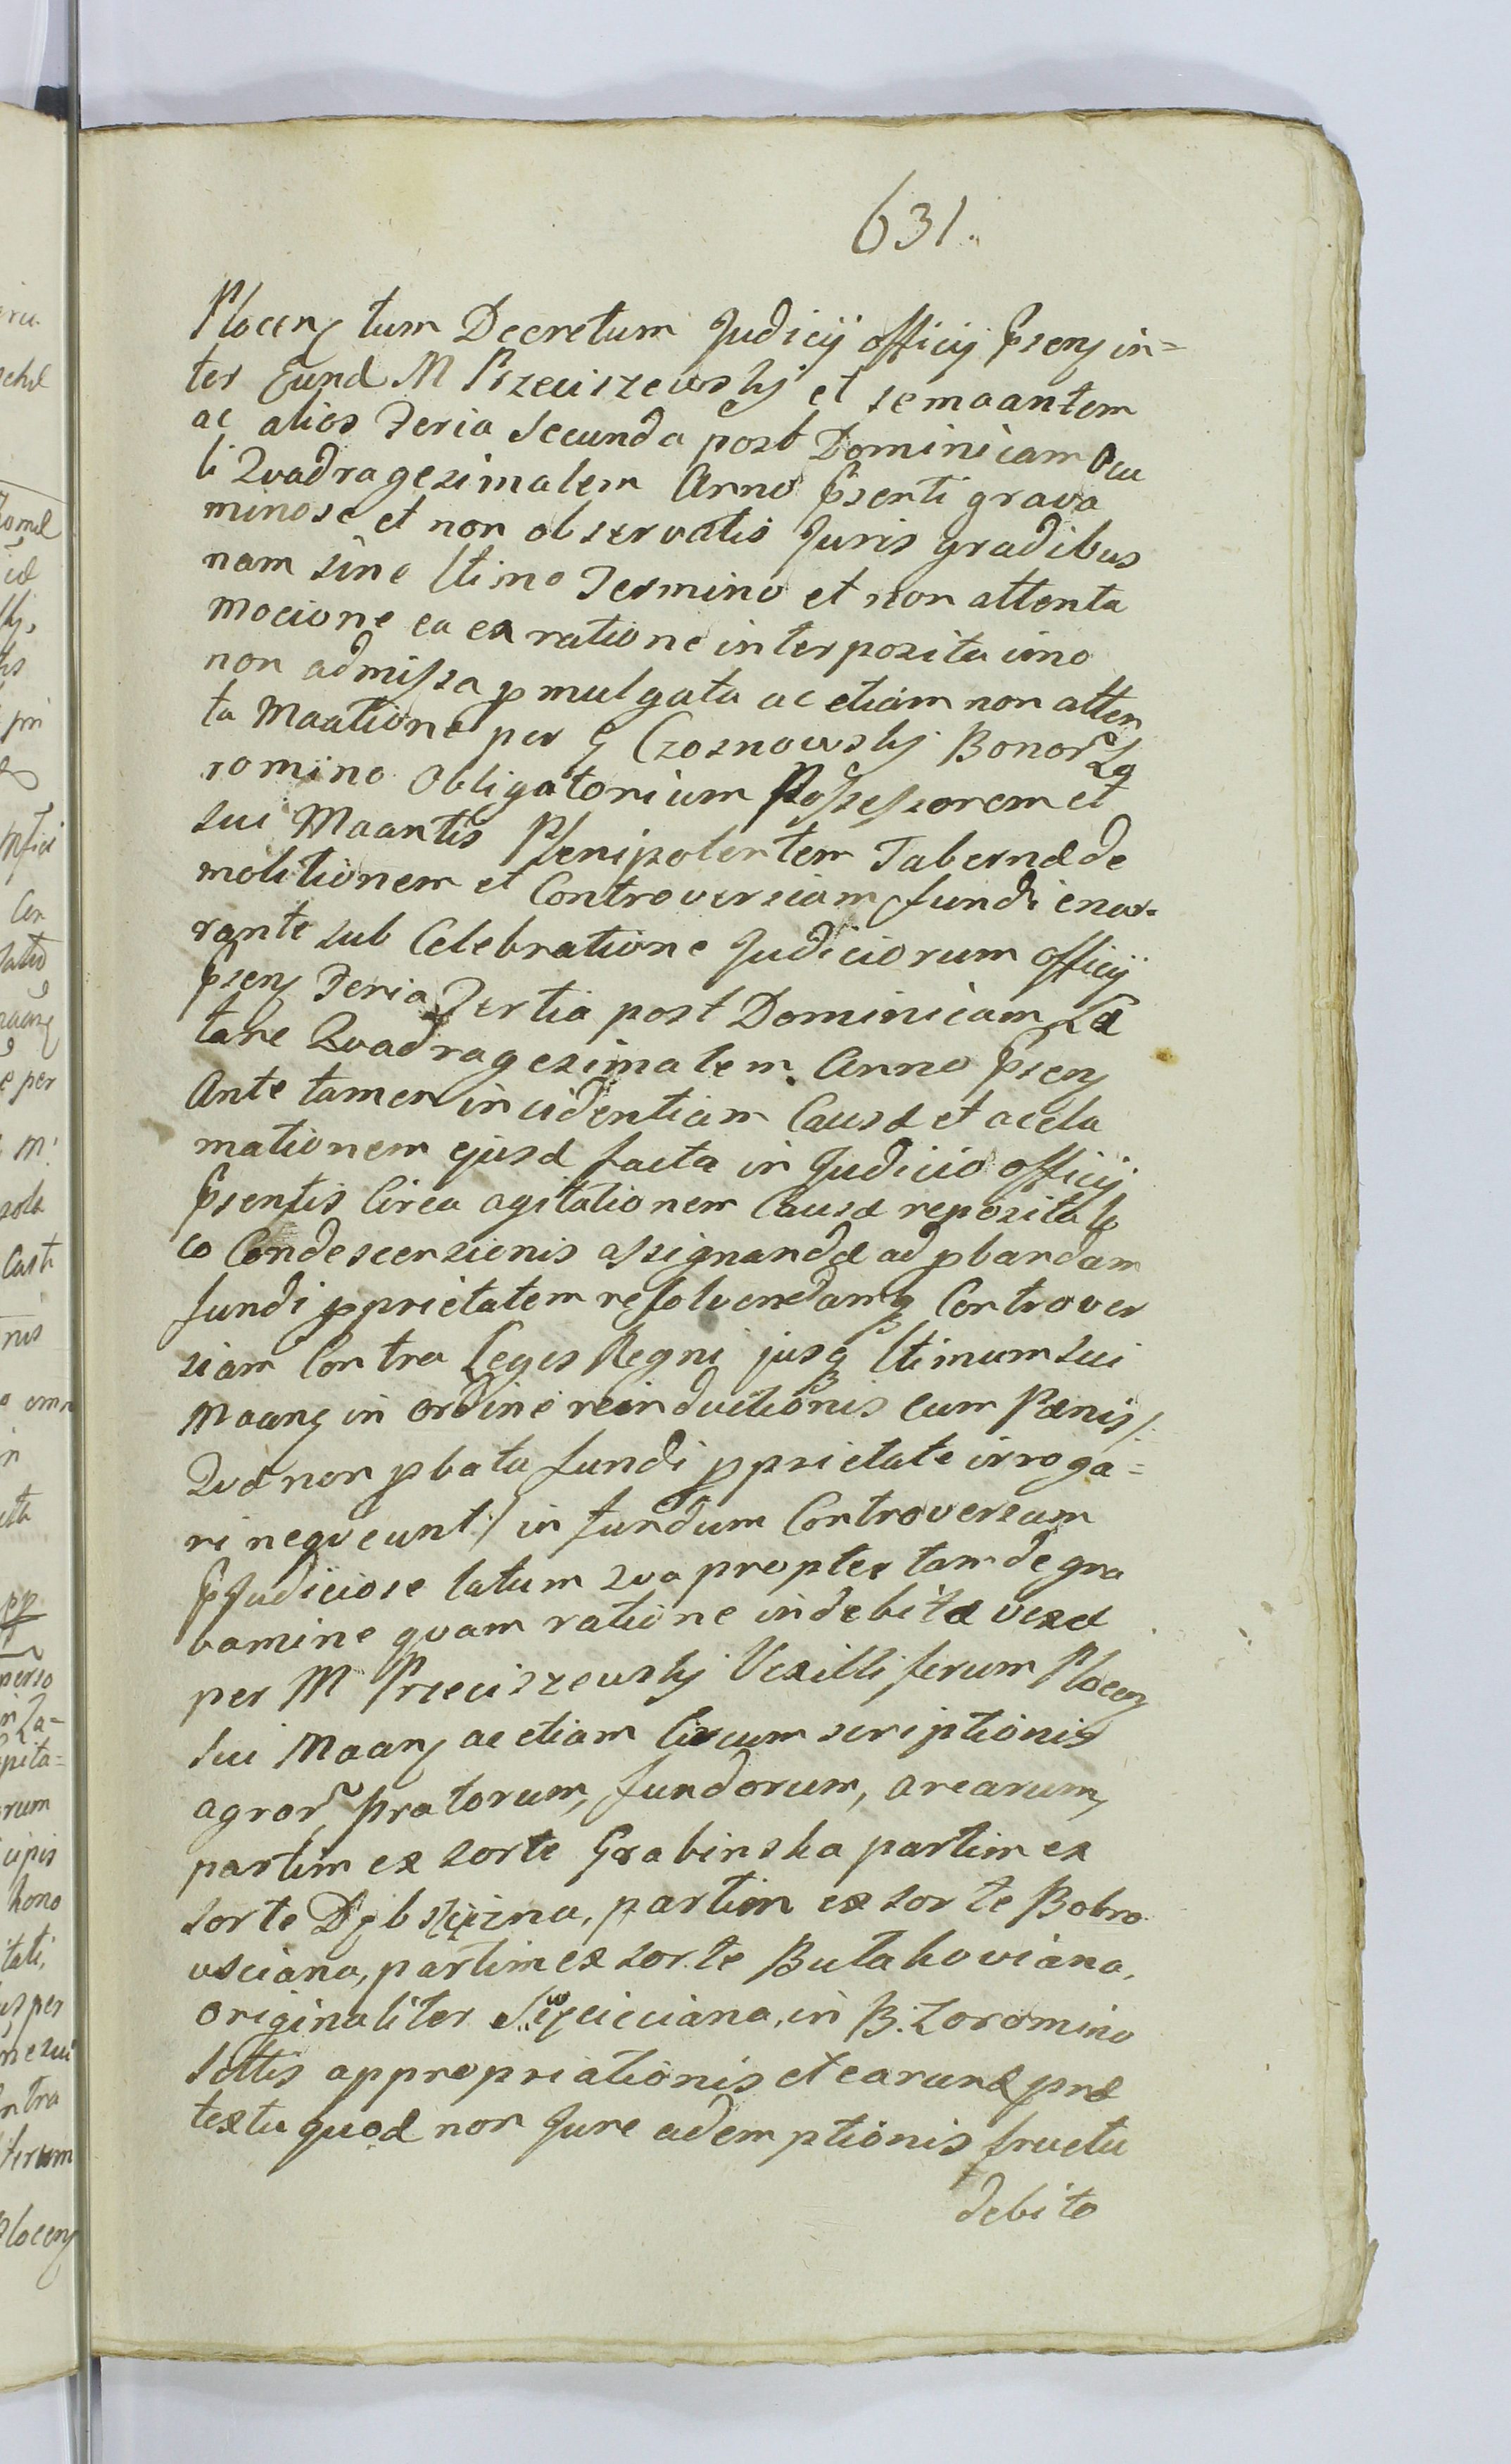 631.
Plocen̄ tum Decretum Judicij officij p̄sen̄ in=
ter Eund M Przeciszewskj et semaantem
ac alios Feria Secunda post Dominicam Ocu
li Quadragesimalem Anno p̄senti grava
minose et non observatis Juris gradibus
nam sine ltimo Termino et non attenta
mocione ea ex ratione interposita imo
non admissa pmulgata ac etiam non atten
ta Maatione per G Czosnowskj Bonor̃ Ła
romino Obligatorium Possessorem et
sui Maantis Plenipotentem Tabernæ de
molitionem et Controversiam fundi enar=
rante sub Celebratione Judiciorum officij
p̄sen̄ Feria Tertia post Dominicam Læ
tare Quadragesimalem. Anno p̄sen̄
Ante tamen incidentiam Causæ et accla
mationem ejusd facta in Judicio officij
p̄sentis Circa agitationem Causæ reposita lo
co Condescensionis assignandæ ad pbandam
fundi pprietatem resolvendamq Controver
siam Contra Leges Regni jusq ltimum sui
Maan̄ in ordine reinductionis cum Pænis /:
Quæ non pbata fundi pprietate irroga=
ri neqveunt :/ in fundum Controversum
p̄judiciose latum qva propter tam de gra
vamine qvam ratione indebitæ vexæ
per M Przeciszewskj Vexilliferum Plocen̄
sui Maan̄ ac etiam Circumscriptionis
agror̃, pratorum, fundorum, arearum,
partim ex sorte Grabinska partim ex
sorte partim ex sorte Bobro
vsciana, partim ex sorte Butakoviana,
originaliter in B. Zoromino
sittis appropriationis et earund præ
textu quod non Jure ademptionis fructu
debito